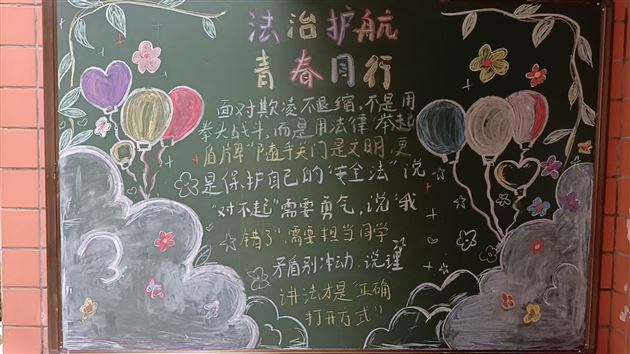 法治护航
青春同行
面对欺凌不退缩,不是用
拳头战斗,而是用法律“举起
盾牌”“随手关门是文明,更
是保护自己的“安全法”说
“对不起”需要勇气,说“我
错了”需要担当同学
矛盾别冲动.说理
讲法才是“正确
打开方式”